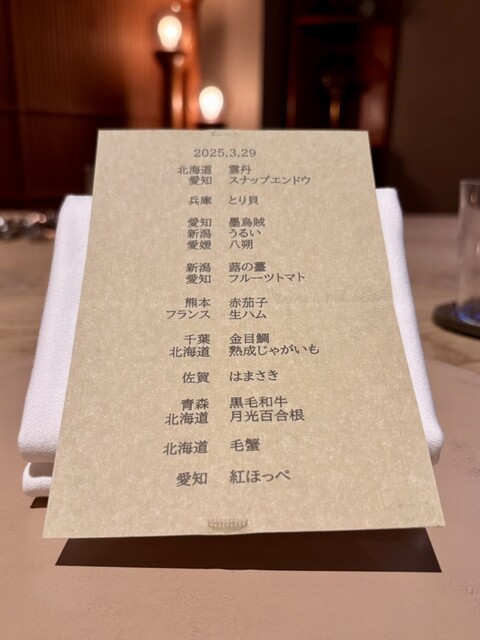 2025.3.29
北海道 雲丹
愛知 スナップエンドウ
兵庫 とり貝
愛知 墨烏賊
新潟 うるい
愛媛 八朔
新潟 蕗の薹
愛知 フルーツトマト
熊本 赤茄子
フランス 生ハム
千葉 金目鯛
北海道 熟成じゃがいも
佐賀 はまさき
青森 黒毛和牛
北海道 月光百合根
北海道 毛蟹
愛知 紅ほっぺ